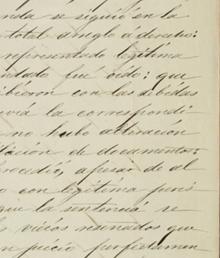 nda se siguió en la
total arreglo a derecho:
representada legítima
fué oido: que
ibieron con las debidas
la correspondi
no hubo alteración
tación de documentos
rocedió, apesar de el
o con legítima pers
que la sentencia se
vicios reseñados que
n juicio perfectamen